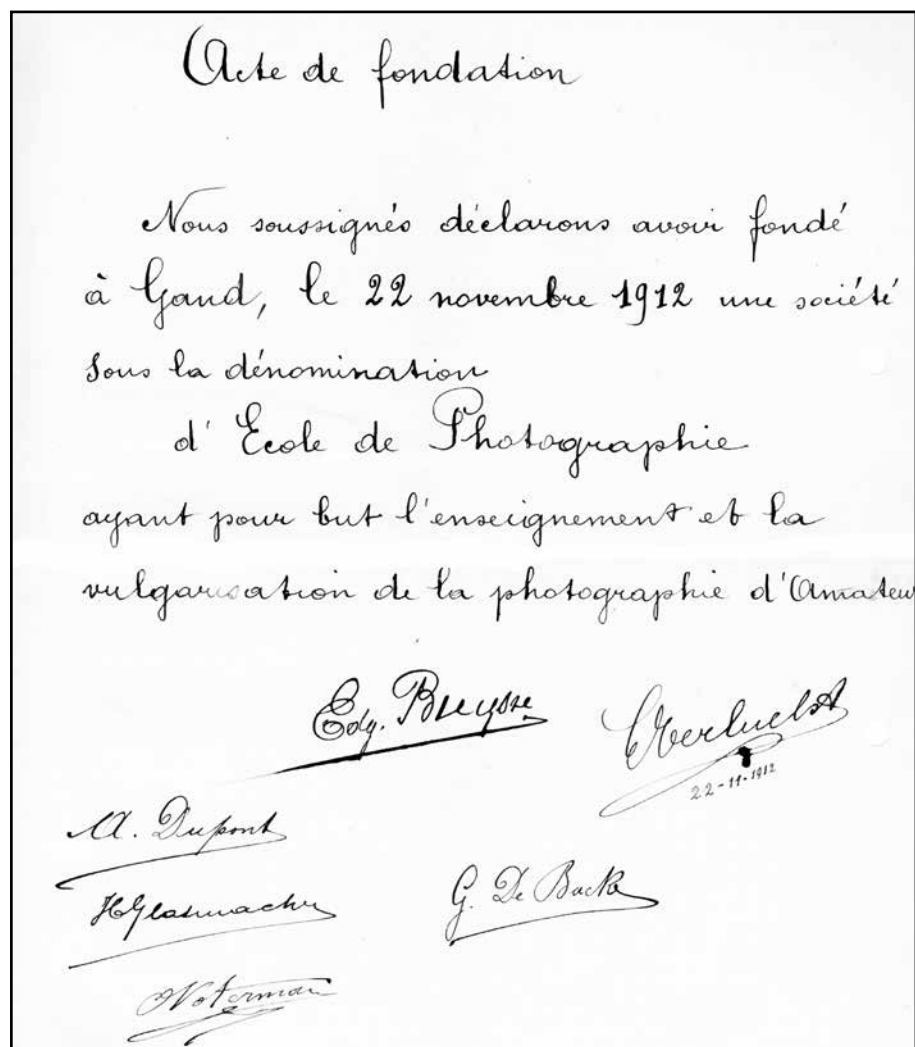 Acte de fondation
Nous soussignés déclarons avoir fondé
à Gand, le 22 novembre 1912 une société
sous la dénomination
d'Ecole de Photographie
ayant pour but l'enseignement et la
vulgarisation de la photographie d'Amateur
Edg. Bruysse
22-11-1912
A. Dupont
G. De Backe
H Glasmacher
Noterman